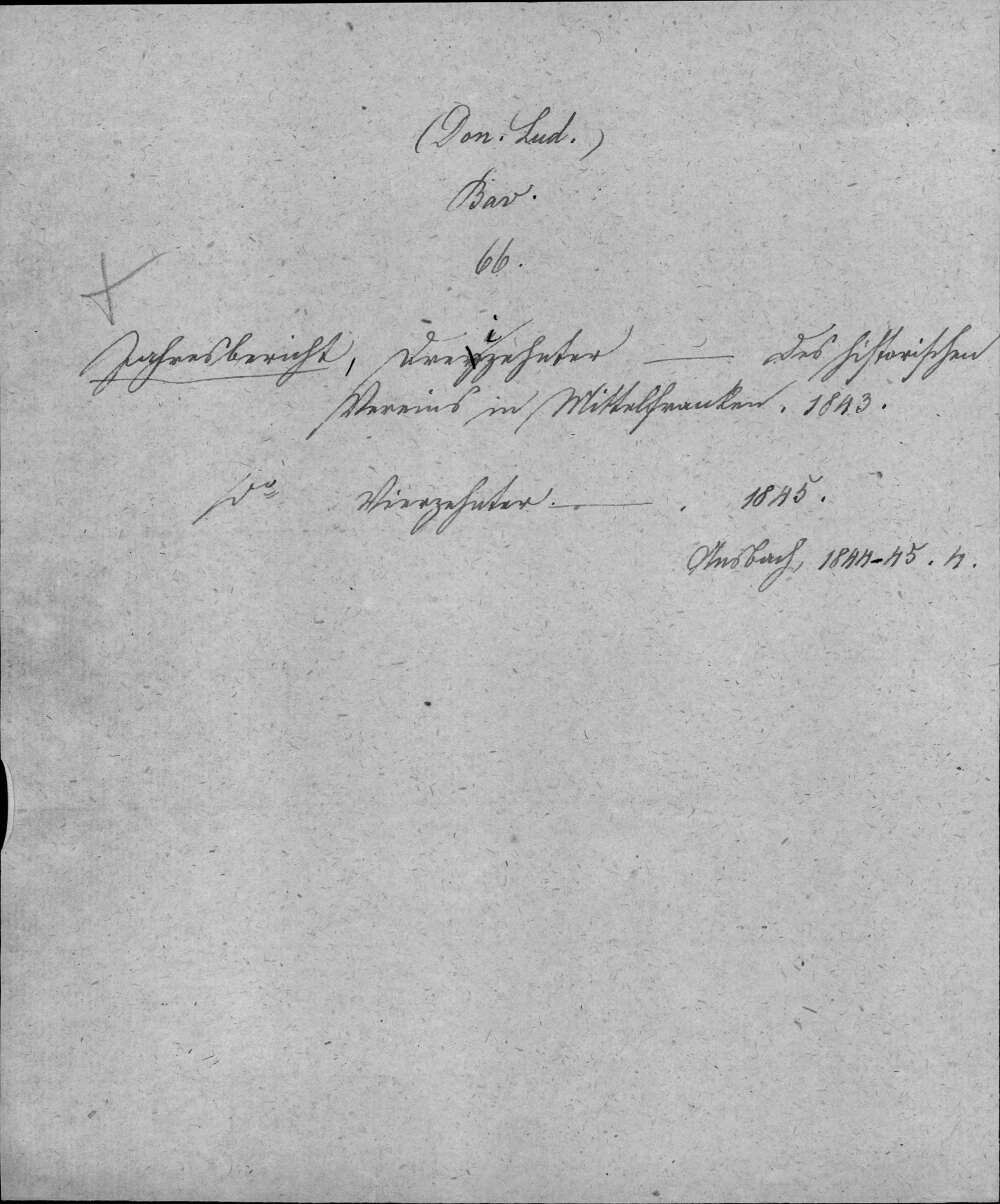 (Don. Lud.)
Bav.
66.
Jahresbericht, Dreizehnter — des historischen
Vereins in Mittelfranken. 1843.
do Vierzehnter. — . 1845.
Ansbach, 1844-45. 4.